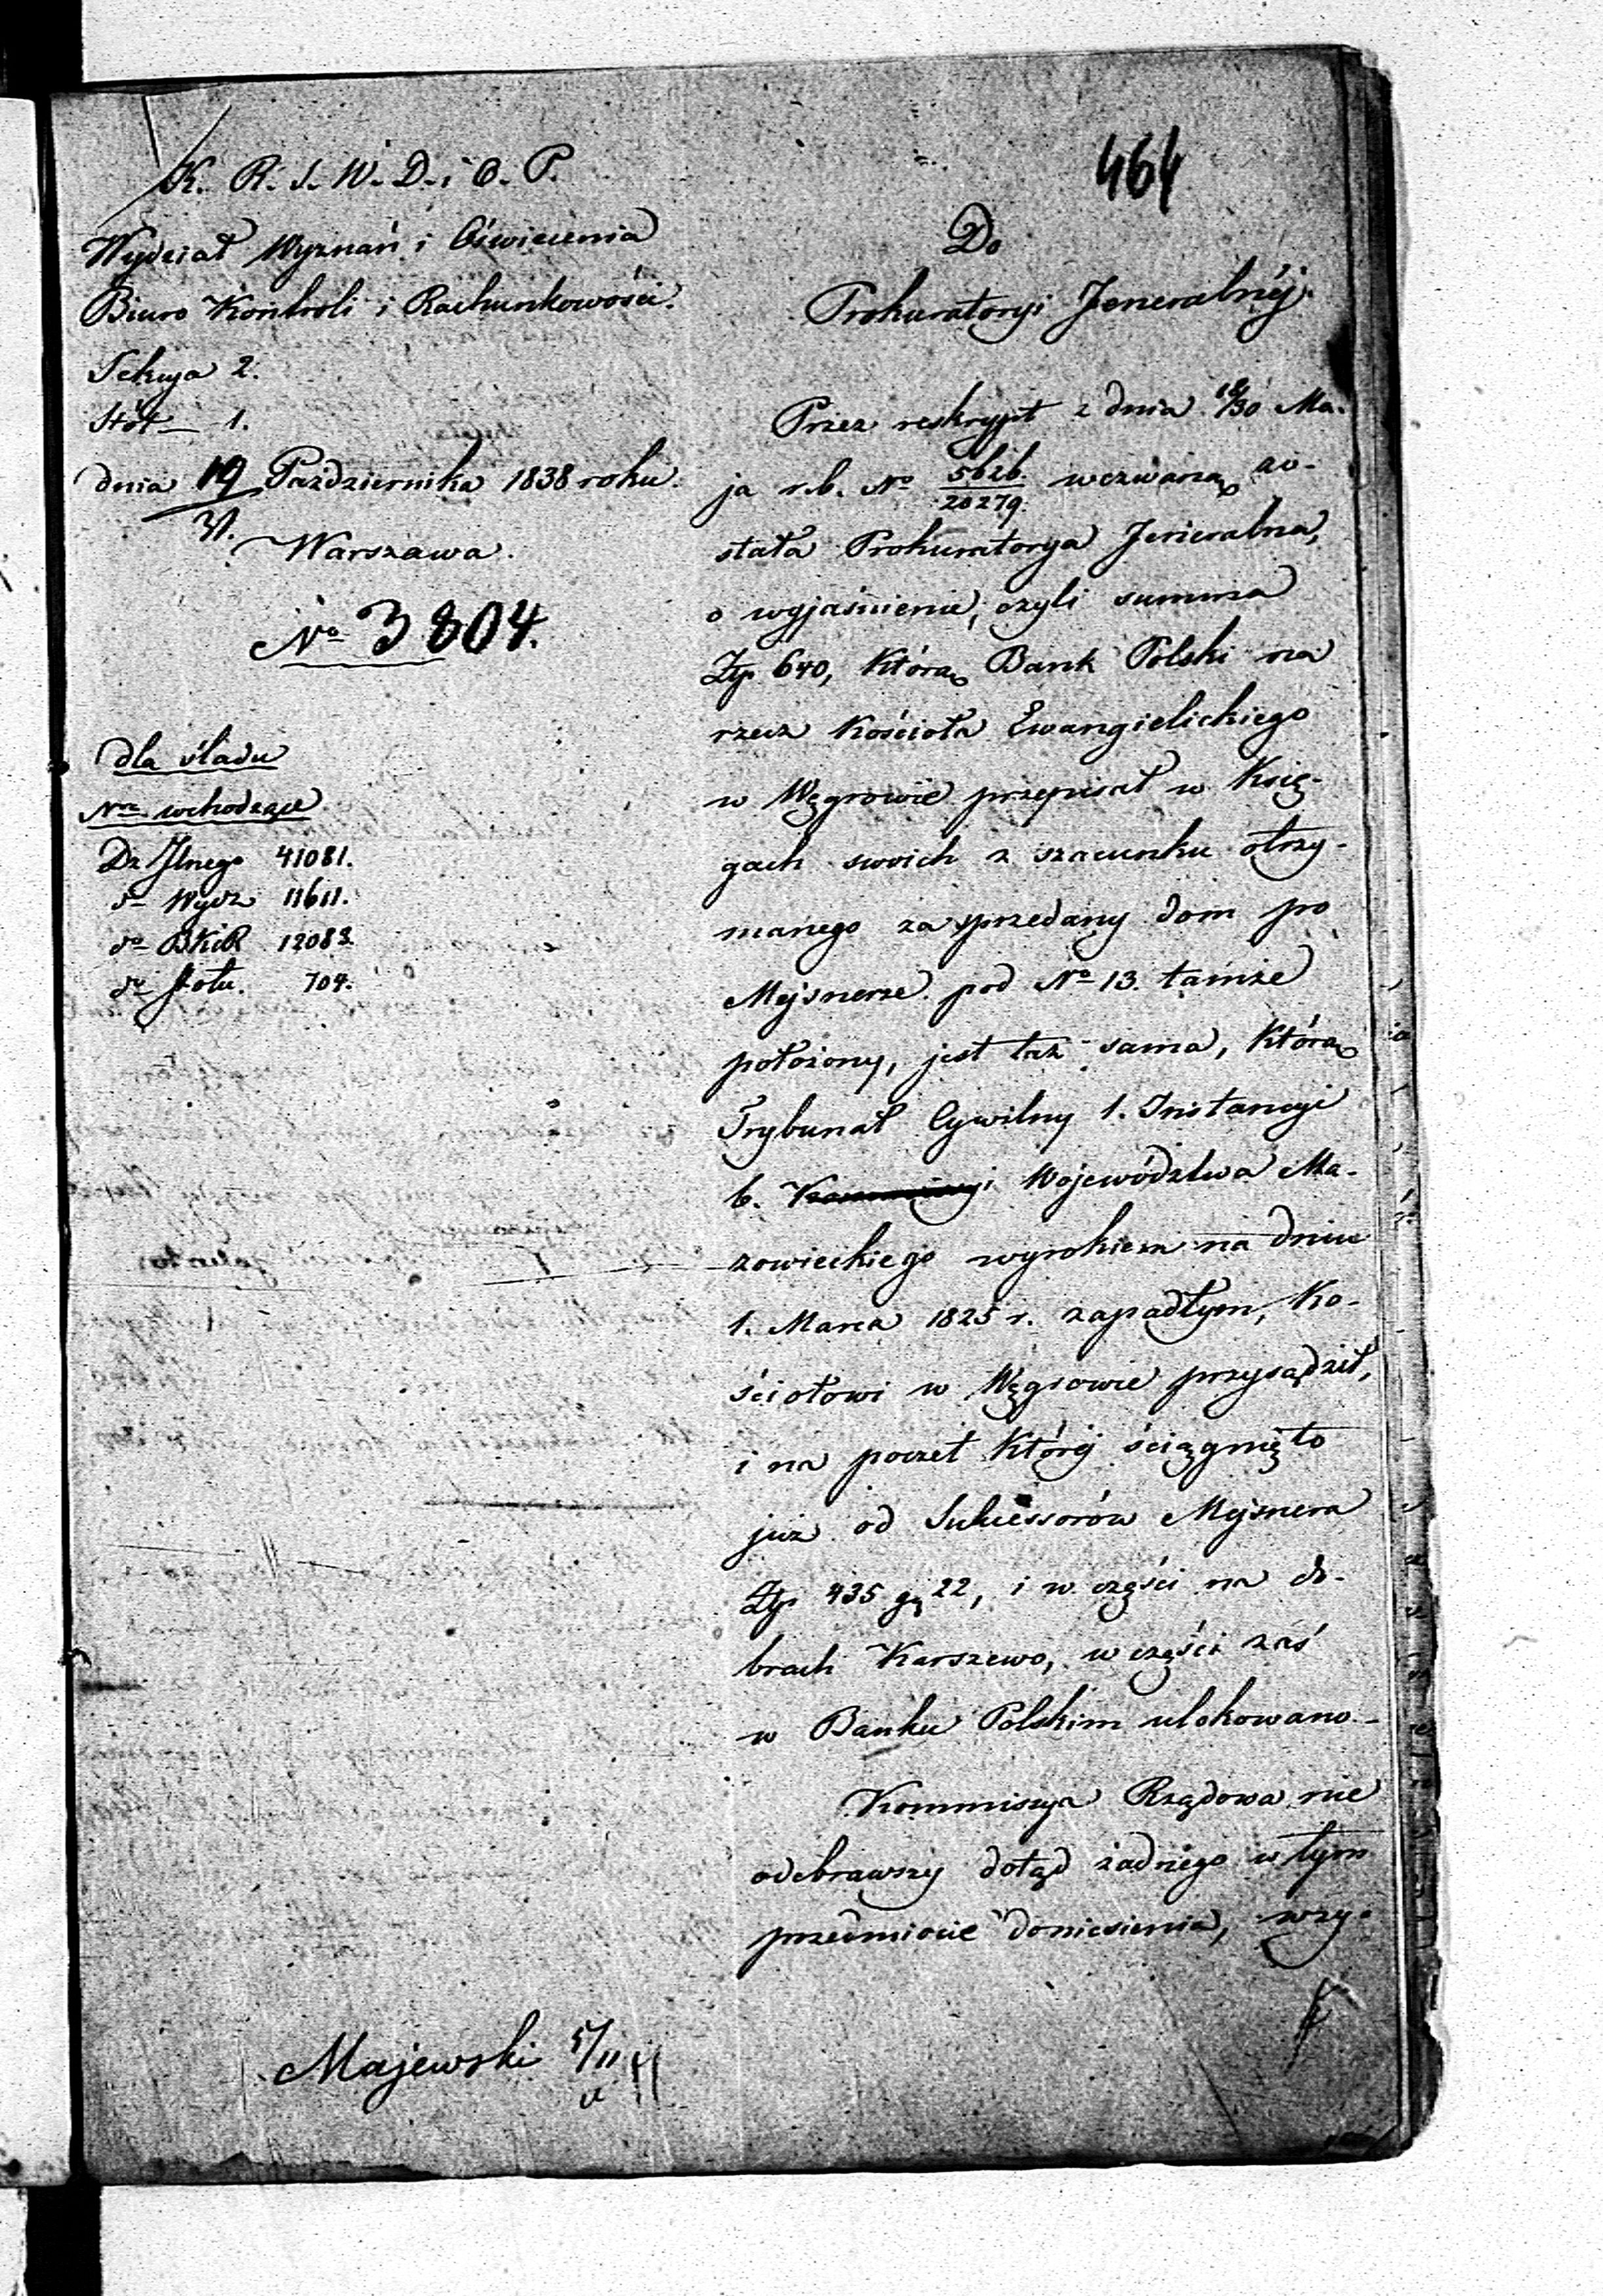 464
K. R. S. W. D. i O. P.
Wydział Wyznań i Oświecenia
Biuro Kontroli i Rachunkowości.
Sekcya 2.
Stół 1.
dnia 19/31. Października 1838 roku.
Warszawa.
No 3804.
dla śladu
Nra wchodzące
Dz Jlnego 41081.
do Wydz 11611.
do BKiR 12083.
do stołu. 704.
Do
Prokuratoryi Jeneralnéj.
Przez reskrypt z dnia 18/30 Ma-
ja r.b. No 5626/20279. wezwaną zo-
stała Prokuratorya Jeneralna,
o wyjaśnienie, czyli summa
Złp. 640, którą Bank Polski na
rzecz Kościoła Ewangielickiego
w Węgrowie przepisał w Księ-
gach swoich z szacunku otrzy-
manego za sprzedany dom po
Mejsnerze pod No 13. tamże
położony, jest taż sama, którą
Trybunał Cywilny 1. Instancyi
b. Województwa Ma-
zowieckiego wyrokiem na dniu
1. Marca 1825 r. zapadłym, Ko-
ściołowi w Węgrowie przysądził,
i na poczet któréj ściągnięto
już od Sukcessorów Mejsnera
Złp 435 gr 22, i w części na do-
brach Karszewo, w części zaś
w Banku Polskim ulokowano.
Kommissya Rządowa nie
odebrawszy dotąd żadnego w tym
przedmiocie doniesienia, wzy-
Majewski 5/11